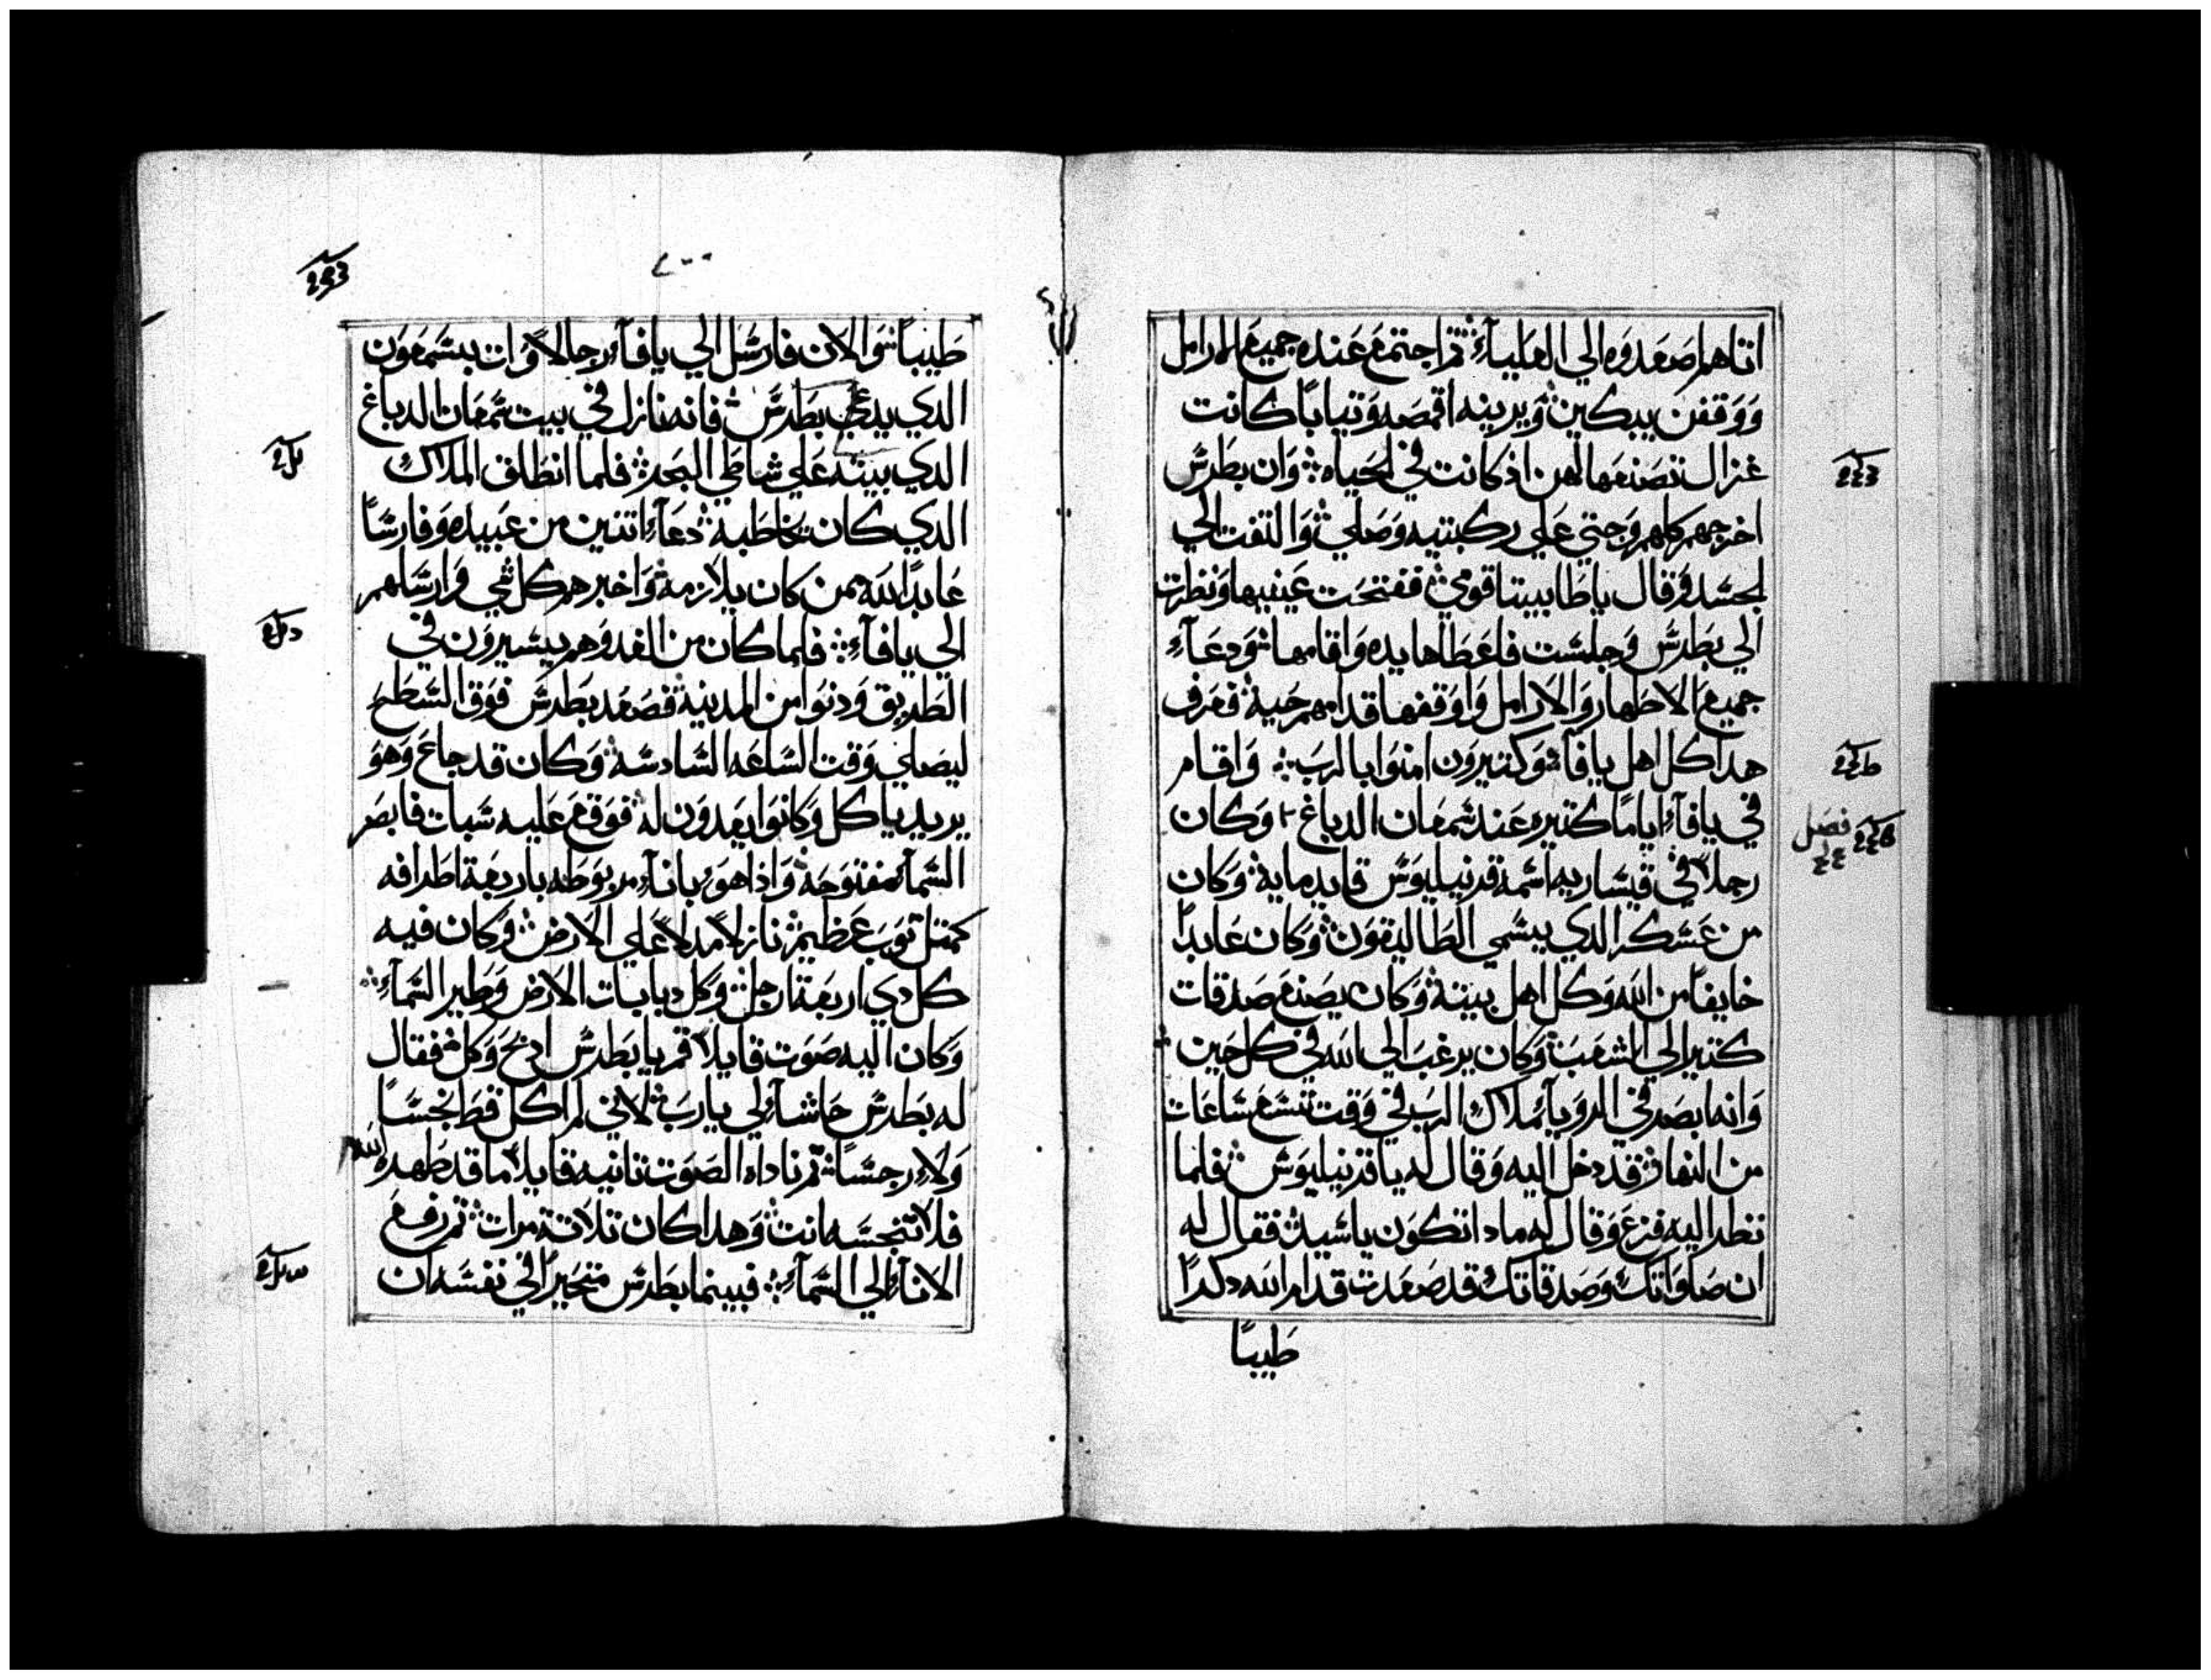 اتاهم اصعدوه الي العلياء ثم اجتمع عنده جميع الارامل
ووقفن يبكين ويرينه اقمصه وتيابا كانت
غزال تصنعها لهن اذ كانت في الحياه وان بطرس
اخرجهم كلهم وجتي علي ركبتيه وصلي والتفت الي
الجسد وقال ياطابيتا قومي ففتحت عينيها ونظرت
الي بطرس وجلست فاعطاها يده واقامها ودعاء
جميع الاطهار والارامل واوقفها قدامهم حية فعرف
هدا كل اهل يافا وكتيرون امنوا بالرب واقام
في يافاء اياما كتيره عند شمعان الدباغ وكان
رجلا في قيساريه اسمه قرنيليوس قايد ماية وكان
من عسكر الدي يسمي الطاليقون وكان عابدا
خايفا من الله وكل اهل بيته وكان يصنع صدقات
كتير الي الشعب وكان يرغب الي الله في كل حين
وانه ابصر في الرويا ملاك الرب في وقت تسع ساعات
من النهار قد دخل اليه وقال له ياقرنيليوس فلما
نظر اليه فزع وقال له مادا تكون ياسيد فقال له
ان صلواتك وصدقاتك قد صعدت قدام الله دكرا
فصل
طيبا
طيبا والان فارسل الي يافاء رجالا وات بسمعون
الدي يدعي بطرس فانه نازل في بيت شمعان الدباغ
الدي بيته علي شاطي البحر فلما انطلق الملاك
الدي كان يخاطبه دعاء اتنين من عبيده وفارسا
عابدا لله ممن كان يلازمه واخبرهم كل شي وارسلهم
الي يافاء فلما كان من الغد وهم يسيرون في
الطريق ودنوا من المدينة فصعد بطرس فوق السطح
ليصلي وقت الساعه السادسه وكان قد جاع وهو
يريد ياكل وكانوا يعدون له فوقع عليه سبات فابصر
السماء مفتوحة واذا هو باناء مربوطه باربعة اطرافه
كمتل توب عظيم نازلا مدلا علي الارض وكان فيه
كل دي اربعة ارجل وكل دبابات الارض وطير السماء
وكان اليه صوت قايلا قم يابطرس ادبح وكل فقال
له بطرس حاشاء لي يارب لاني لم اكل قط نجسا
ولا رجسا تم ناداه الصوت تانيه قايلا ما قد طهره الله
فلا تنجسه انت وهدا كان تلاتة مرات تم رفع
الاناء الي السماء فبينما بطرس متحيرا في نفسه ان